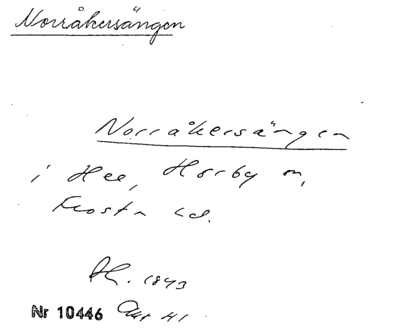 Norråkersängen
Norråkersängen
i Hee, Hörby sn,
Frosta hd.
1843
Nr 10446 Akt 41